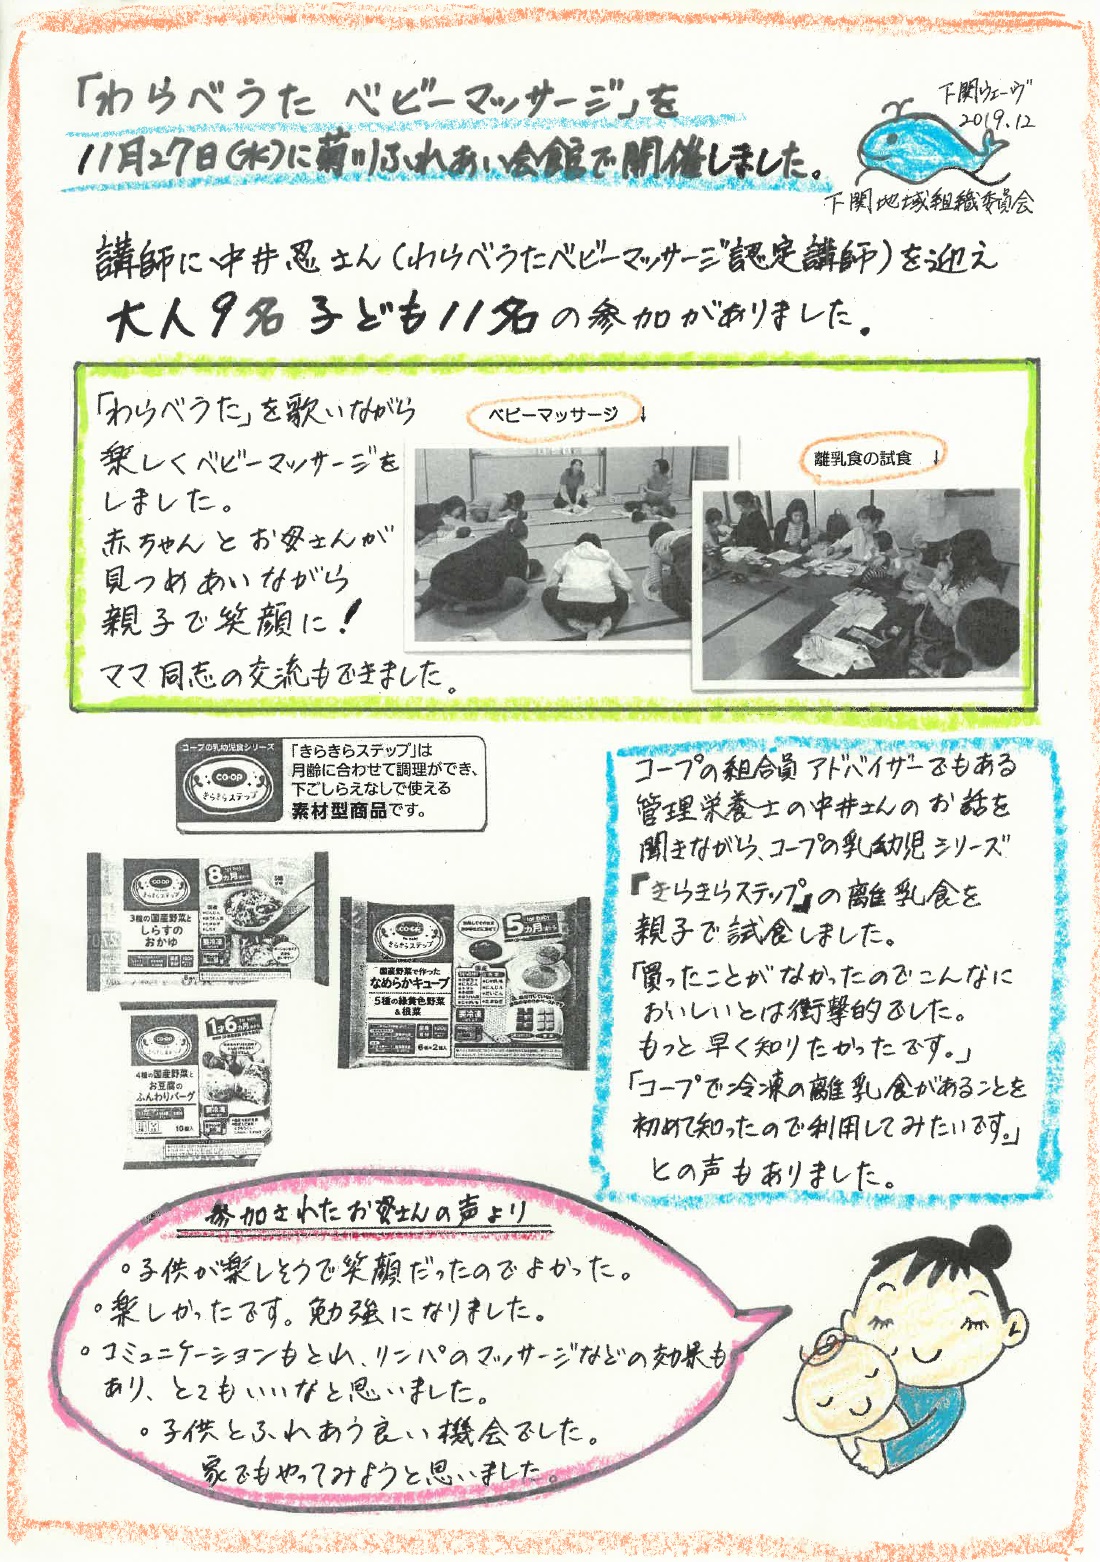 「わらべうた ベビーマッサージ」を
11月27日(水)に菊川ふれあい会館で開催しました。
下関ウェーヴ
2019.12
下関地域組織委員会
講師に、中井忍さん(わらべうたベビーマッサージ認定講師)を迎え
大人9名 子ども11名の参加がありました。
「わらべうた」を歌いながら
楽しくベビーマッサージを
しました。
赤ちゃんとお母さんが
見つめあいながら
親子で笑顔に!
ママ同志の交流もできました。
ベビーマッサージ ↓
離乳食の試食 ↓
コープの乳幼児食シリーズ
CO・OP
きらきらステップ
「きらきらステップ」は
月齢に合わせて調理ができ、
下ごしらえなしで使える
素材型商品です。
CO・OP
きらきらステップ
8カ月
3種の国産野菜と
しらすの
おかゆ
CO・OP
きらきらステップ
5カ月
国産野菜で作った
なめらかキューブ
5種の緑黄色野菜
&根菜
6個×2個入
CO・OP
きらきらステップ
1才6カ月
4種の国産野菜と
お豆腐の
ふんわりバーグ
10個入
コープの組合員アドバイザーでもある
管理栄養士の中井さんのお話を
聞きながら、コープの乳幼児シリーズ
『きらきらステップ』の離乳食を
親子で試食しました。
「買ったことがなかったのでこんなに
おいしいとは衝撃的でした。
もっと早く知りたかったです。」
「コープで冷凍の離乳食があることを
初めて知ったので利用してみたいです。」
との声もありました。
参加されたお母さんの声より
○子供が楽しそうで笑顔だったのでよかった。
○楽しかったです。勉強になりました。
○コミュニケーションもとれ、リンパのマッサージなどの効果も
あり、とてもいいなと思いました。
○子供とふれあう良い機会でした。
家でもやってみようと思いました。